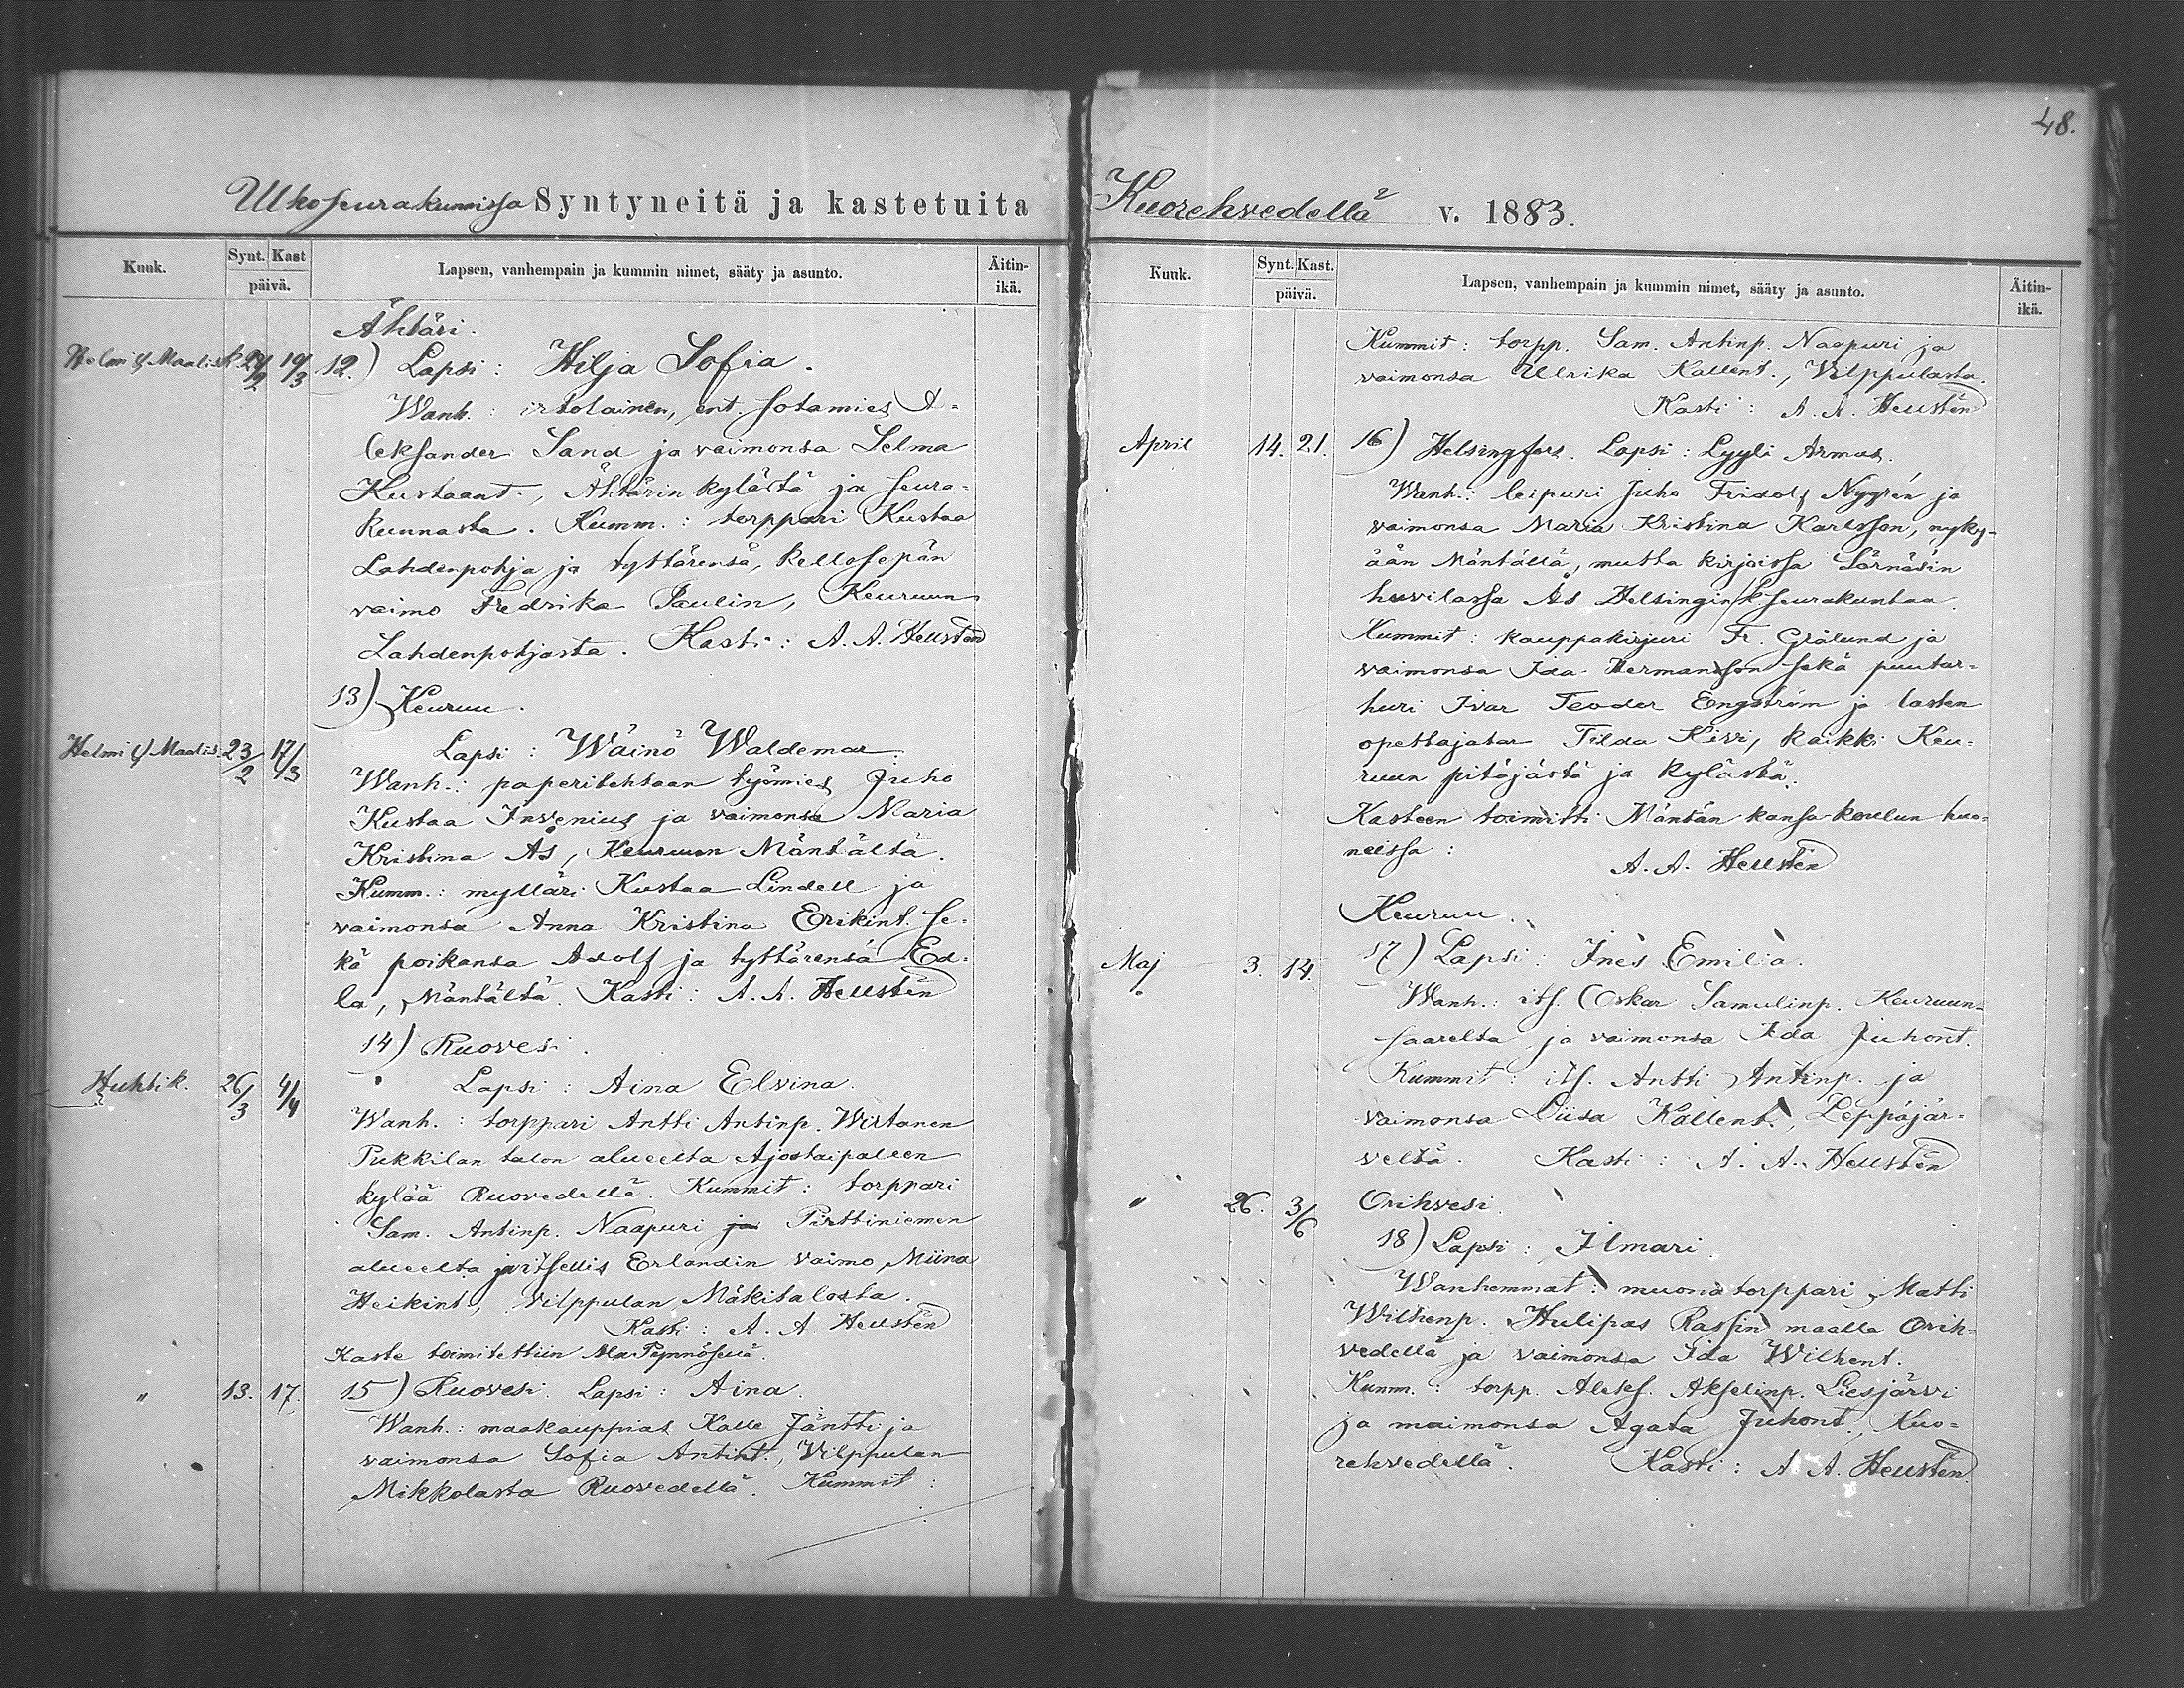 48.
Ulkoseurakunnissa Syntyneitä ja kastetuita
Kuuk. Synt. Kast päivä. Lapsen, vanhempain ja kummin nimet, sääty ja asunto. Äitin-ikä.
Ähtäri.
Helmi & Maalisk. 24/2 19/3 12.) Lapsi: Hilja Sofia.
Wanh.: irtolainen, ent. sotamies A-
leksander Sand ja vaimonsa Selma
Kustaant., Ähtärin kylästä ja seura-
kunnasta. Kumm.: torppari Kustaa
Lahdenpohja ja tyttärensä, kellosepän
vaimo Fredrika Paulin, Keuruun
Lahdenpohjasta. Kasti: A. A. Hellstén
13) Keuruu.
Helmi & Maalis. 23/2 17/3 Lapsi: Wäinö Waldemar
Wanh.: paperitehtaan työmies Juho
Kustaa Invenius ja vaimonsa Maria
Kristina Ås, Keuruun Mäntältä.
Kumm.: mylläri Kustaa Lindell ja
vaimonsa Anna Kristina Erikint. se-
kä poikansa Adolf ja tyttärensä Ed-
la, Mäntältä. Kasti: A. A. Hellstén
14) Ruovesi.
Huhtik. 26/3 4/4 Lapsi: Aina Elvina.
Wanh.: torppari Antti Antinp. Wirtanen
Pukkilan talon alueelta Ajostaipaleen
kylää Ruovedellä. Kummit: torppari
Sam. Antinp. Naapuri ja Pirttiniemen
alueelta ja itsellis Erlandin vaimo Miina
Heikint., Vilppulan Mäkitalosta.
Kasti: A. A. Hellstén
Kaste toimitettiin Ala Pynnösellä.
" 13. 17. 15) Ruovesi. Lapsi: Aina.
Wanh.: maakauppias Kalle Jäntti ja
vaimonsa Sofia Antint., Vilppulan
Mikkolasta Ruovedellä. Kummit:
Kuorehvedellä v. 1883.
Kuuk. Synt. Kast. päivä. Lapsen, vanhempain ja kummin nimet, sääty ja asunto. Äitin-ikä.
Kummit: torpp. Sam. Antinp. Naapuri ja
vaimonsa Ulrika Kallent., Vilppulasta.
Kasti: A. A. Hellstén
April 14. 21. 16) Helsingfors. Lapsi: Lyyli Armus.
Wanh.: leipuri Juho Fridolf Nygrén ja
vaimonsa Maria Kristina Karlsson, nyky-
ään Mäntällä, mutta kirjoissa Sörnäsin
huvilassa Ås Helsingin k. seurakuntaa.
Kummit: kauppakirjuri Fr. Grölund ja
vaimonsa Ida Hermansson sekä puutar-
huri Ivar Teodor Engström ja lasten
opettajatar Tilda Kivi, kaikki Keu-
ruun pitäjästä ja kylästä.
Kasteen toimitti Mäntän kansakoulun huo-
neissa:
A. A. Hellstén
Keuruu.
Maj 3. 14. 17) Lapsi: Ines Emilia.
Wanh.: its. Oskar Samulinp. Keuruun-
saarelta ja vaimonsa Ida Juhont.
Kummit: its. Antti Antinp. ja
vaimonsa Liisa Kallent., Leppäjär-
veltä. Kasti: A. A. Hellstén
" 26. 3/6 Orihvesi.
18) Lapsi: Ilmari.
Wanhemmat: muonatorppari Matti
Wilhenp. Hulipas Rassin maalla Orih-
vedellä ja vaimonsa Ida Wilhent.
Kumm.: torpp. Aleks. Akselinp. Liesjärvi
ja maimonsa Agata Juhont., Kuo-
rehvedellä. Kasti: A. A. Hellstén